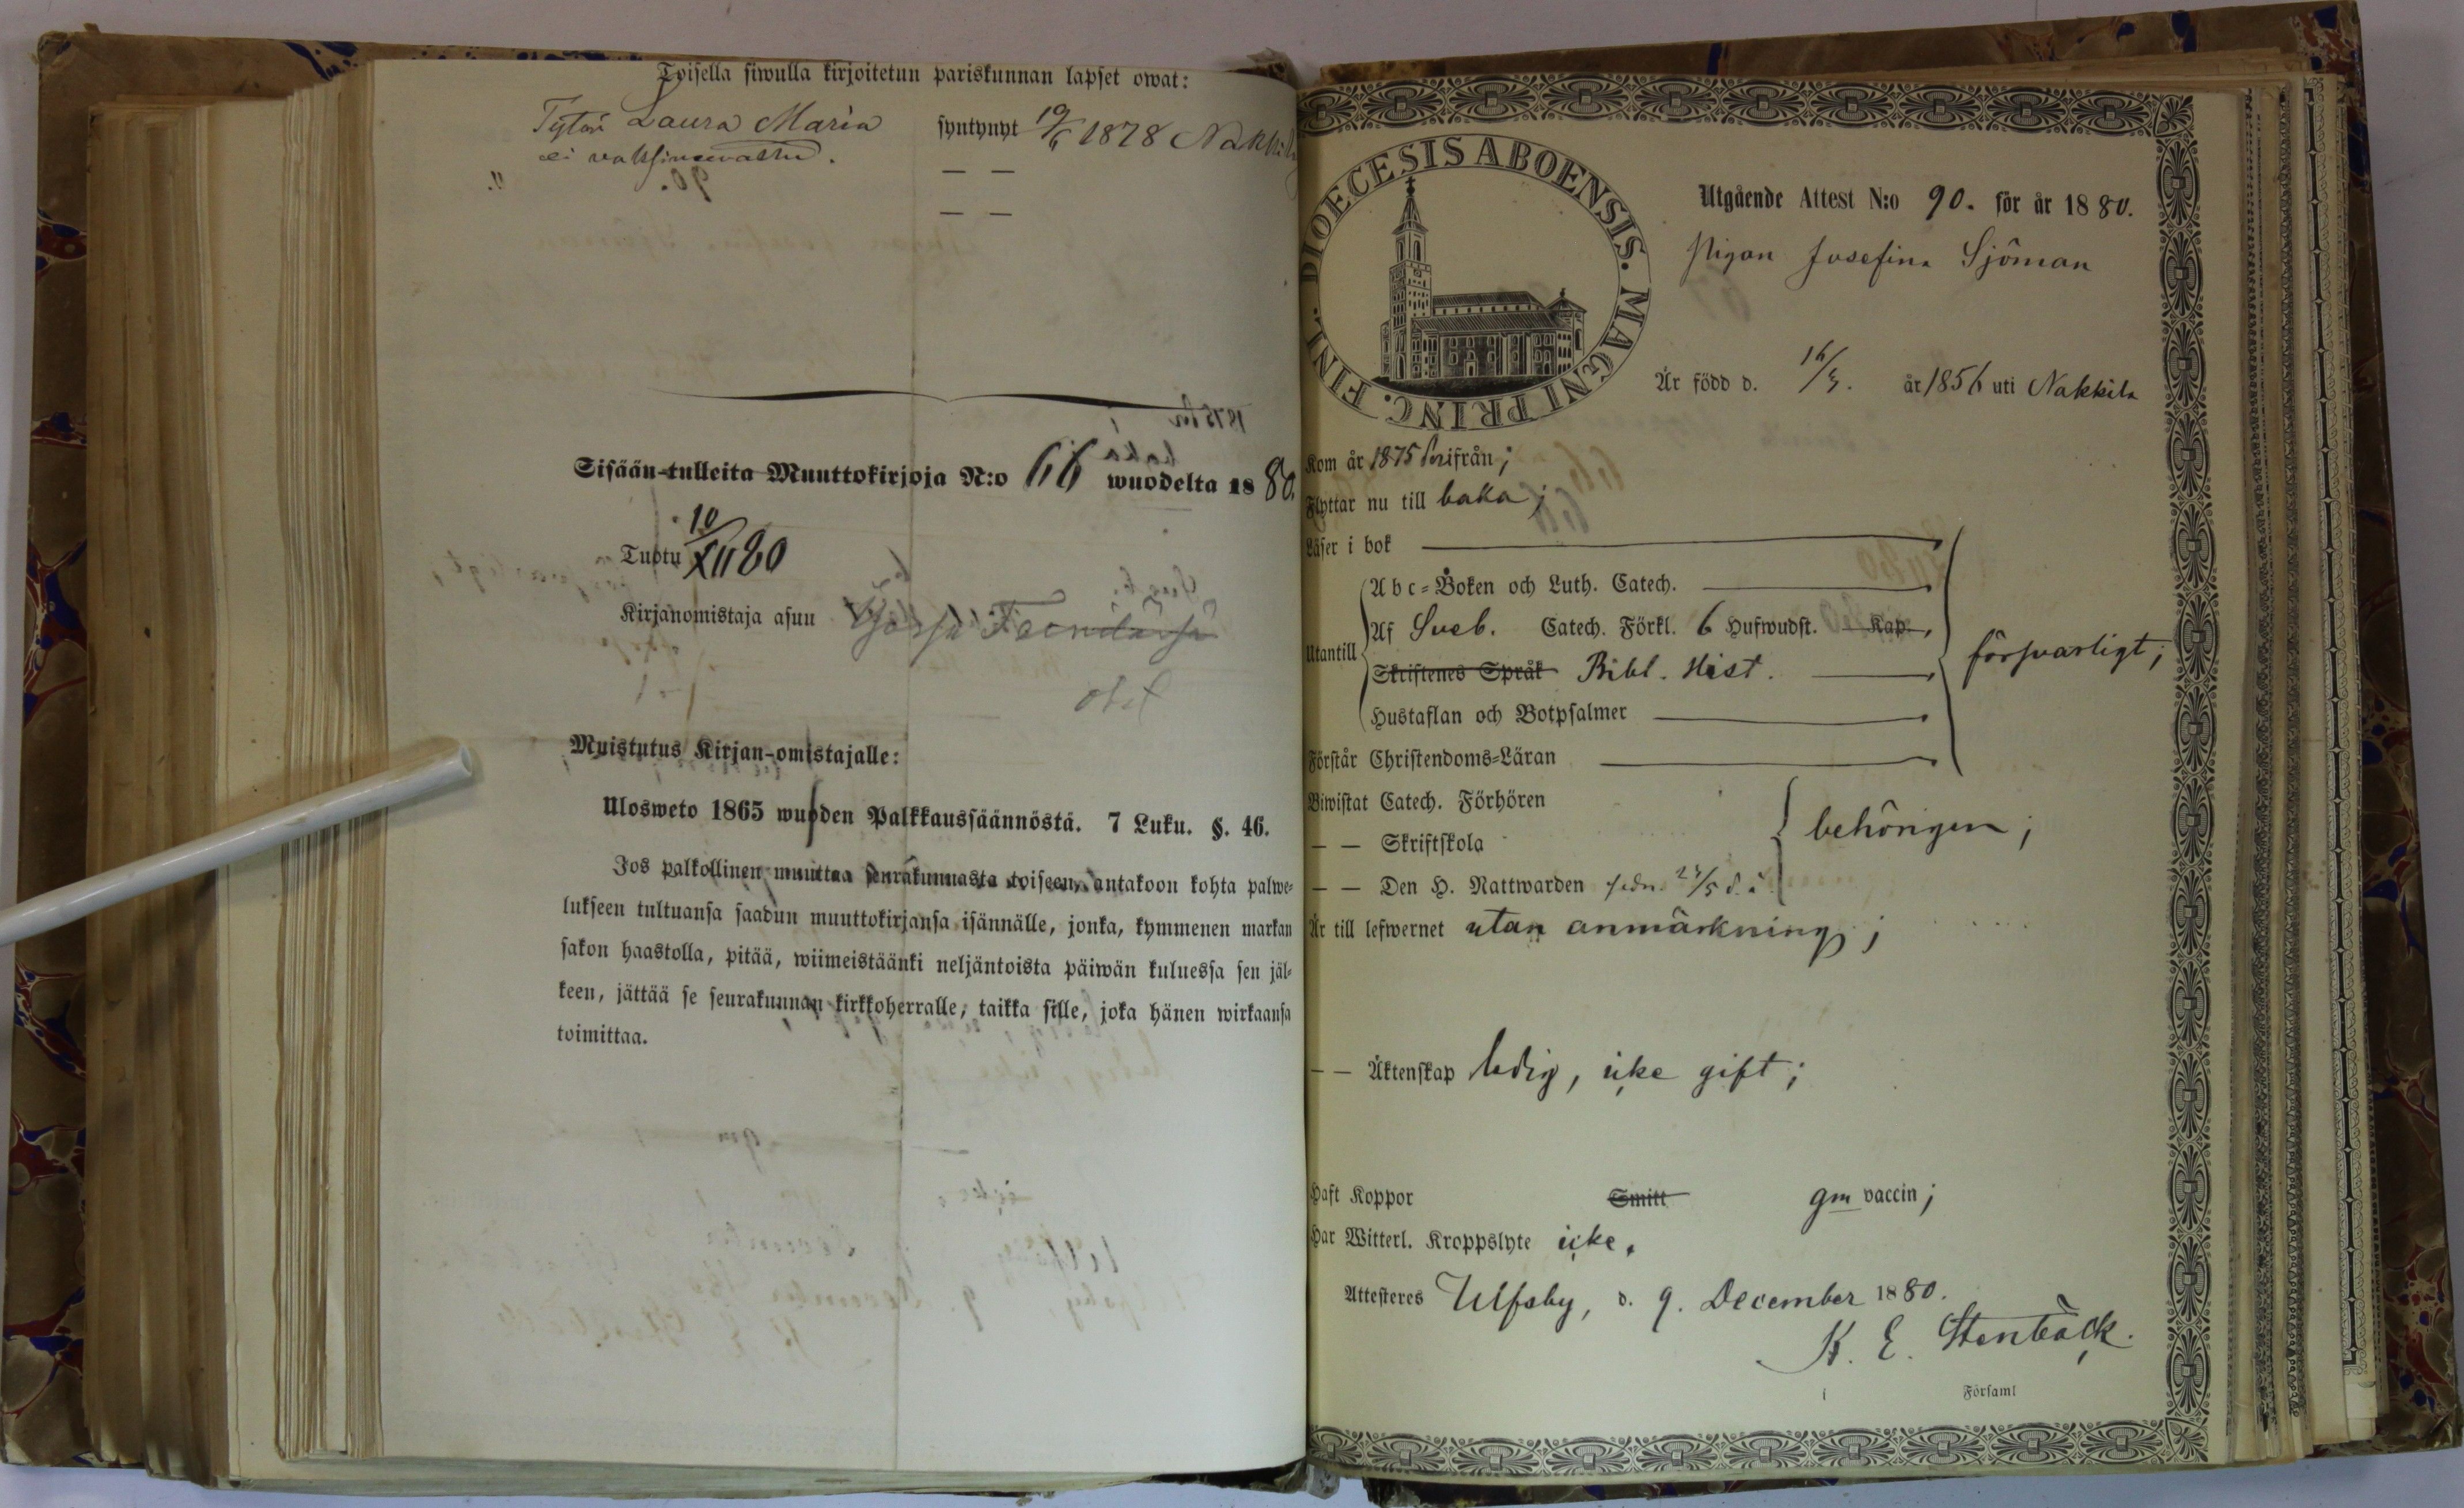 Toisella siwulla kirjoitetun pariskunnan lapset owat:
Tytär Laura Maria syntynyt 19/6 1878 Nakkila
ei
— —
— —
Sisään-tulleita Muuttokirjoja N:o 66 wuodelta 1880.
Tuotu 10/XII 80
Kirjanomistaja asuu
Muistutus Kirjan-omistajalle:
Ulosweto 1865 wuoden Palkkaussäännöstä. 7 Luku. §. 46.
Jos palkollinen muuttaa seurakunnasta toiseen, antakoon kohta palwe-
lukseen tultuansa saadun muuttokirjansa isännälle, jonka, kymmenen markan
sakon haastolla, pitää, wiimeistäänki neljäntoista päiwän kuluessa sen jäl-
keen, jättää se seurakunnan kirkkoherralle, taikka sille, joka hänen wirkaansa
toimittaa.
FINL. DIOECESIS ABOENSIS. MAGNI PRINC.
Utgående Attest N:o 90. för år 1880.
Pigan Josefina Sjöman
Är född d. 16/3. år 1856 uti Nakkila
Kom år 1875 härifrån;
Flyttar nu till baka;
Läser i bok
Utantill
Abc-Boken och Luth. Catech.
Af Sveb. Catech. Förkl. 6 Hufwudst. Kap.
Skriftenes Språk Bibl. Hist.
Hustaflan och Botpsalmer
försvarligt;
Förstår Christendoms-Läran
Biwistat Catech. Förhören
— — Skriftskola
behörigen;
— — Den H. Nattwarden
Är till lefwernet utan anmärkning;
— — Äktenskap ledig, icke gift;
Haft Koppor Smitt gm vaccin;
Har Witterl. Kroppslyte icke.
Attesteres Ulfsby, d. 9. December 1880.
K. E. Stenbäck.
i Församl